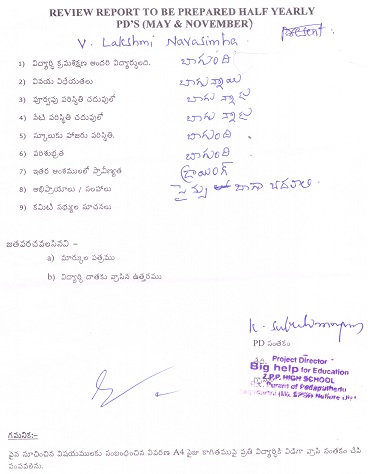 REVIEW REPORT TO BE PREPARED HALF YEARLY
PD'S (MAY & NOVEMBER)
V. Lakshmi Narasimha. Present.
1) విద్యార్థి క్రమశిక్షణ అందరి విద్యార్థులది. బాగుంది
2) వినయ విధేయతలు బాగున్నాయి
3) పూర్వపు పరిస్థితి చదువులో బాగున్నాడు
4) నేటి పరిస్థితి చదువులో బాగున్నాడు
5) స్కూలుకు హాజరు పరిస్థితి. బాగుంది
6) పరిశుభ్రత బాగుంది
7) ఇతర అంశములలో ప్రావీణ్యత డ్రాయింగ్
8) అభిప్రాయాలు / సలహాలు సైన్సు బాగా చదవాలి.
9) కమిటి సభ్యుల సూచనలు
జతపరచవలసినవి :-
a) మార్కుల పత్రము
b) విద్యార్థి దాతకు వ్రాసిన ఉత్తరము
PD సంతకం
Project Director
Big help for Education
Z.P.P. HIGH SCHOOL
గమనిక:-
పైన సూచించిన విషయములకు సంబంధించిన వివరణ A4 సైజు కాగితముపై ప్రతి విద్యార్థికి విడిగా వ్రాసి సంతకం చేసి
పంపవలెను.